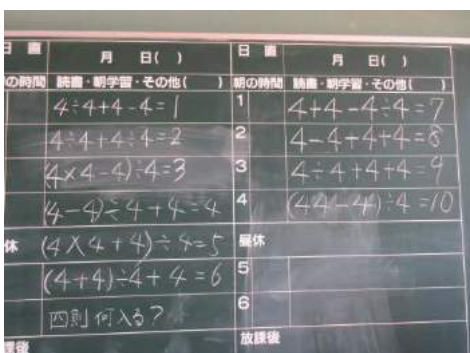 日 直 月 日( )
の時間 読書・朝学習・その他( )
4÷4+4-4=1
4÷4+4÷4=2
(4×4-4)÷4=3
(4-4)÷4+4=4
休 (4×4+4)÷4=5
(4+4)÷4+4=6
四則何入る?
課後
日 直 月 日( )
朝の時間 読書・朝学習・その他( )
1 4+4-4÷4=7
2 4-4+4+4=8
3 4÷4+4+4=9
4 (44-4)÷4=10
昼休
5
6
放課後